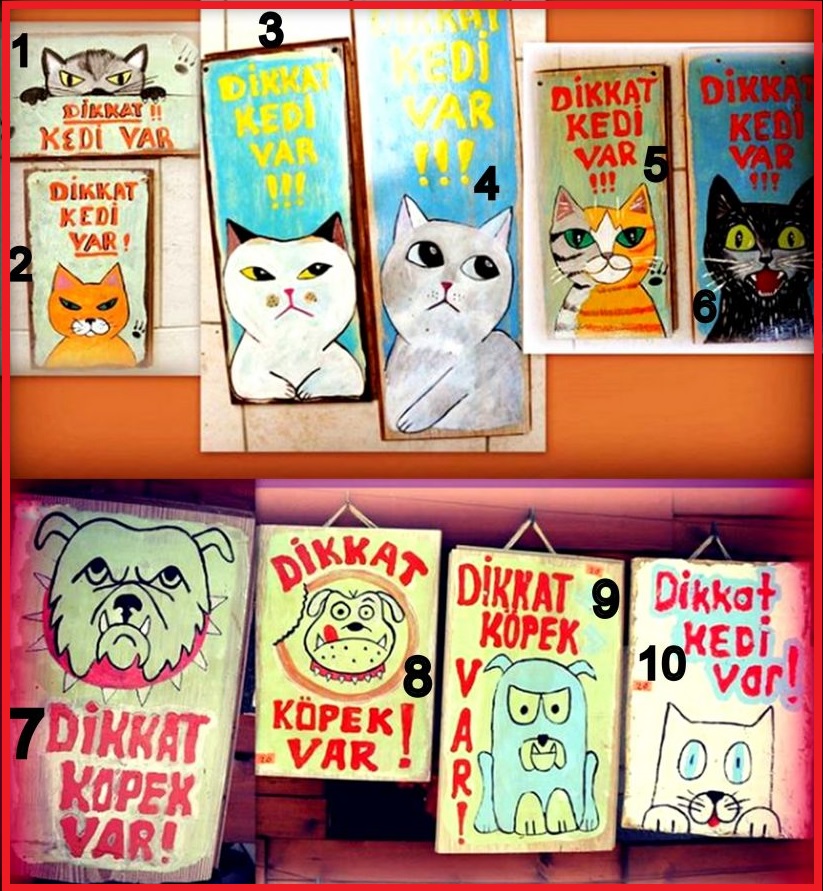 1
DİKKAT !!
KEDİ VAR
2
DİKKAT
KEDİ
VAR !
3
DİKKAT
KEDİ
VAR
!!!
4
DİKKAT
KEDİ
VAR
!!!
5
DİKKAT
KEDİ
VAR
!!!
6
DİKKAT
KEDİ
VAR
!!!
7
DİKKAT
KOPEK
VAR!
8
DİKKAT
KÖPEK
VAR !
9
DİKKAT
KÖPEK
VAR!
10
Dikkat
KEDİ
var!